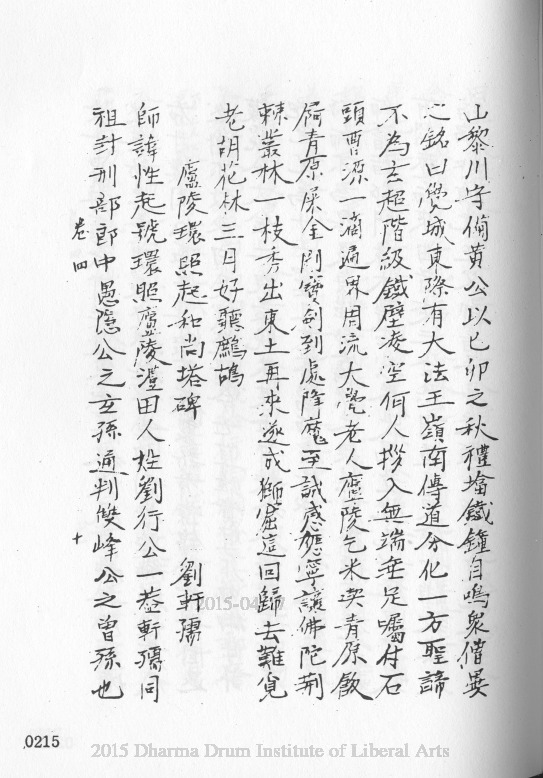 山黎川守備黃公以己卯之秋禮塔鐵鐘自鳴衆僧異
之銘曰覺城東際有大法王嶺南傳道分化一方聖諦
不為玄超階級鐵壁凌空何人拶入無端垂足囑付石
頭曹源一滴遍界周流大覺老人廬陵乞米契青原飯
屙青原屎全開寶劍到處降魔至誠感應寧讓佛陀荊
棘叢林一枝秀出東土再來遂成獅窟這回歸去難覓
老胡花林三月好聽鷓鴣
廬陵環照起和尚塔碑
劉軒孺
師諱性起號環照廬陵澄田人姓劉行公一菴軒孺同
祖討刑部郎中愚隱公之玄孫通判雙峰公之曾孫也
卷四
十
0215
2015 Dharma Drum Institute of Liberal Arts